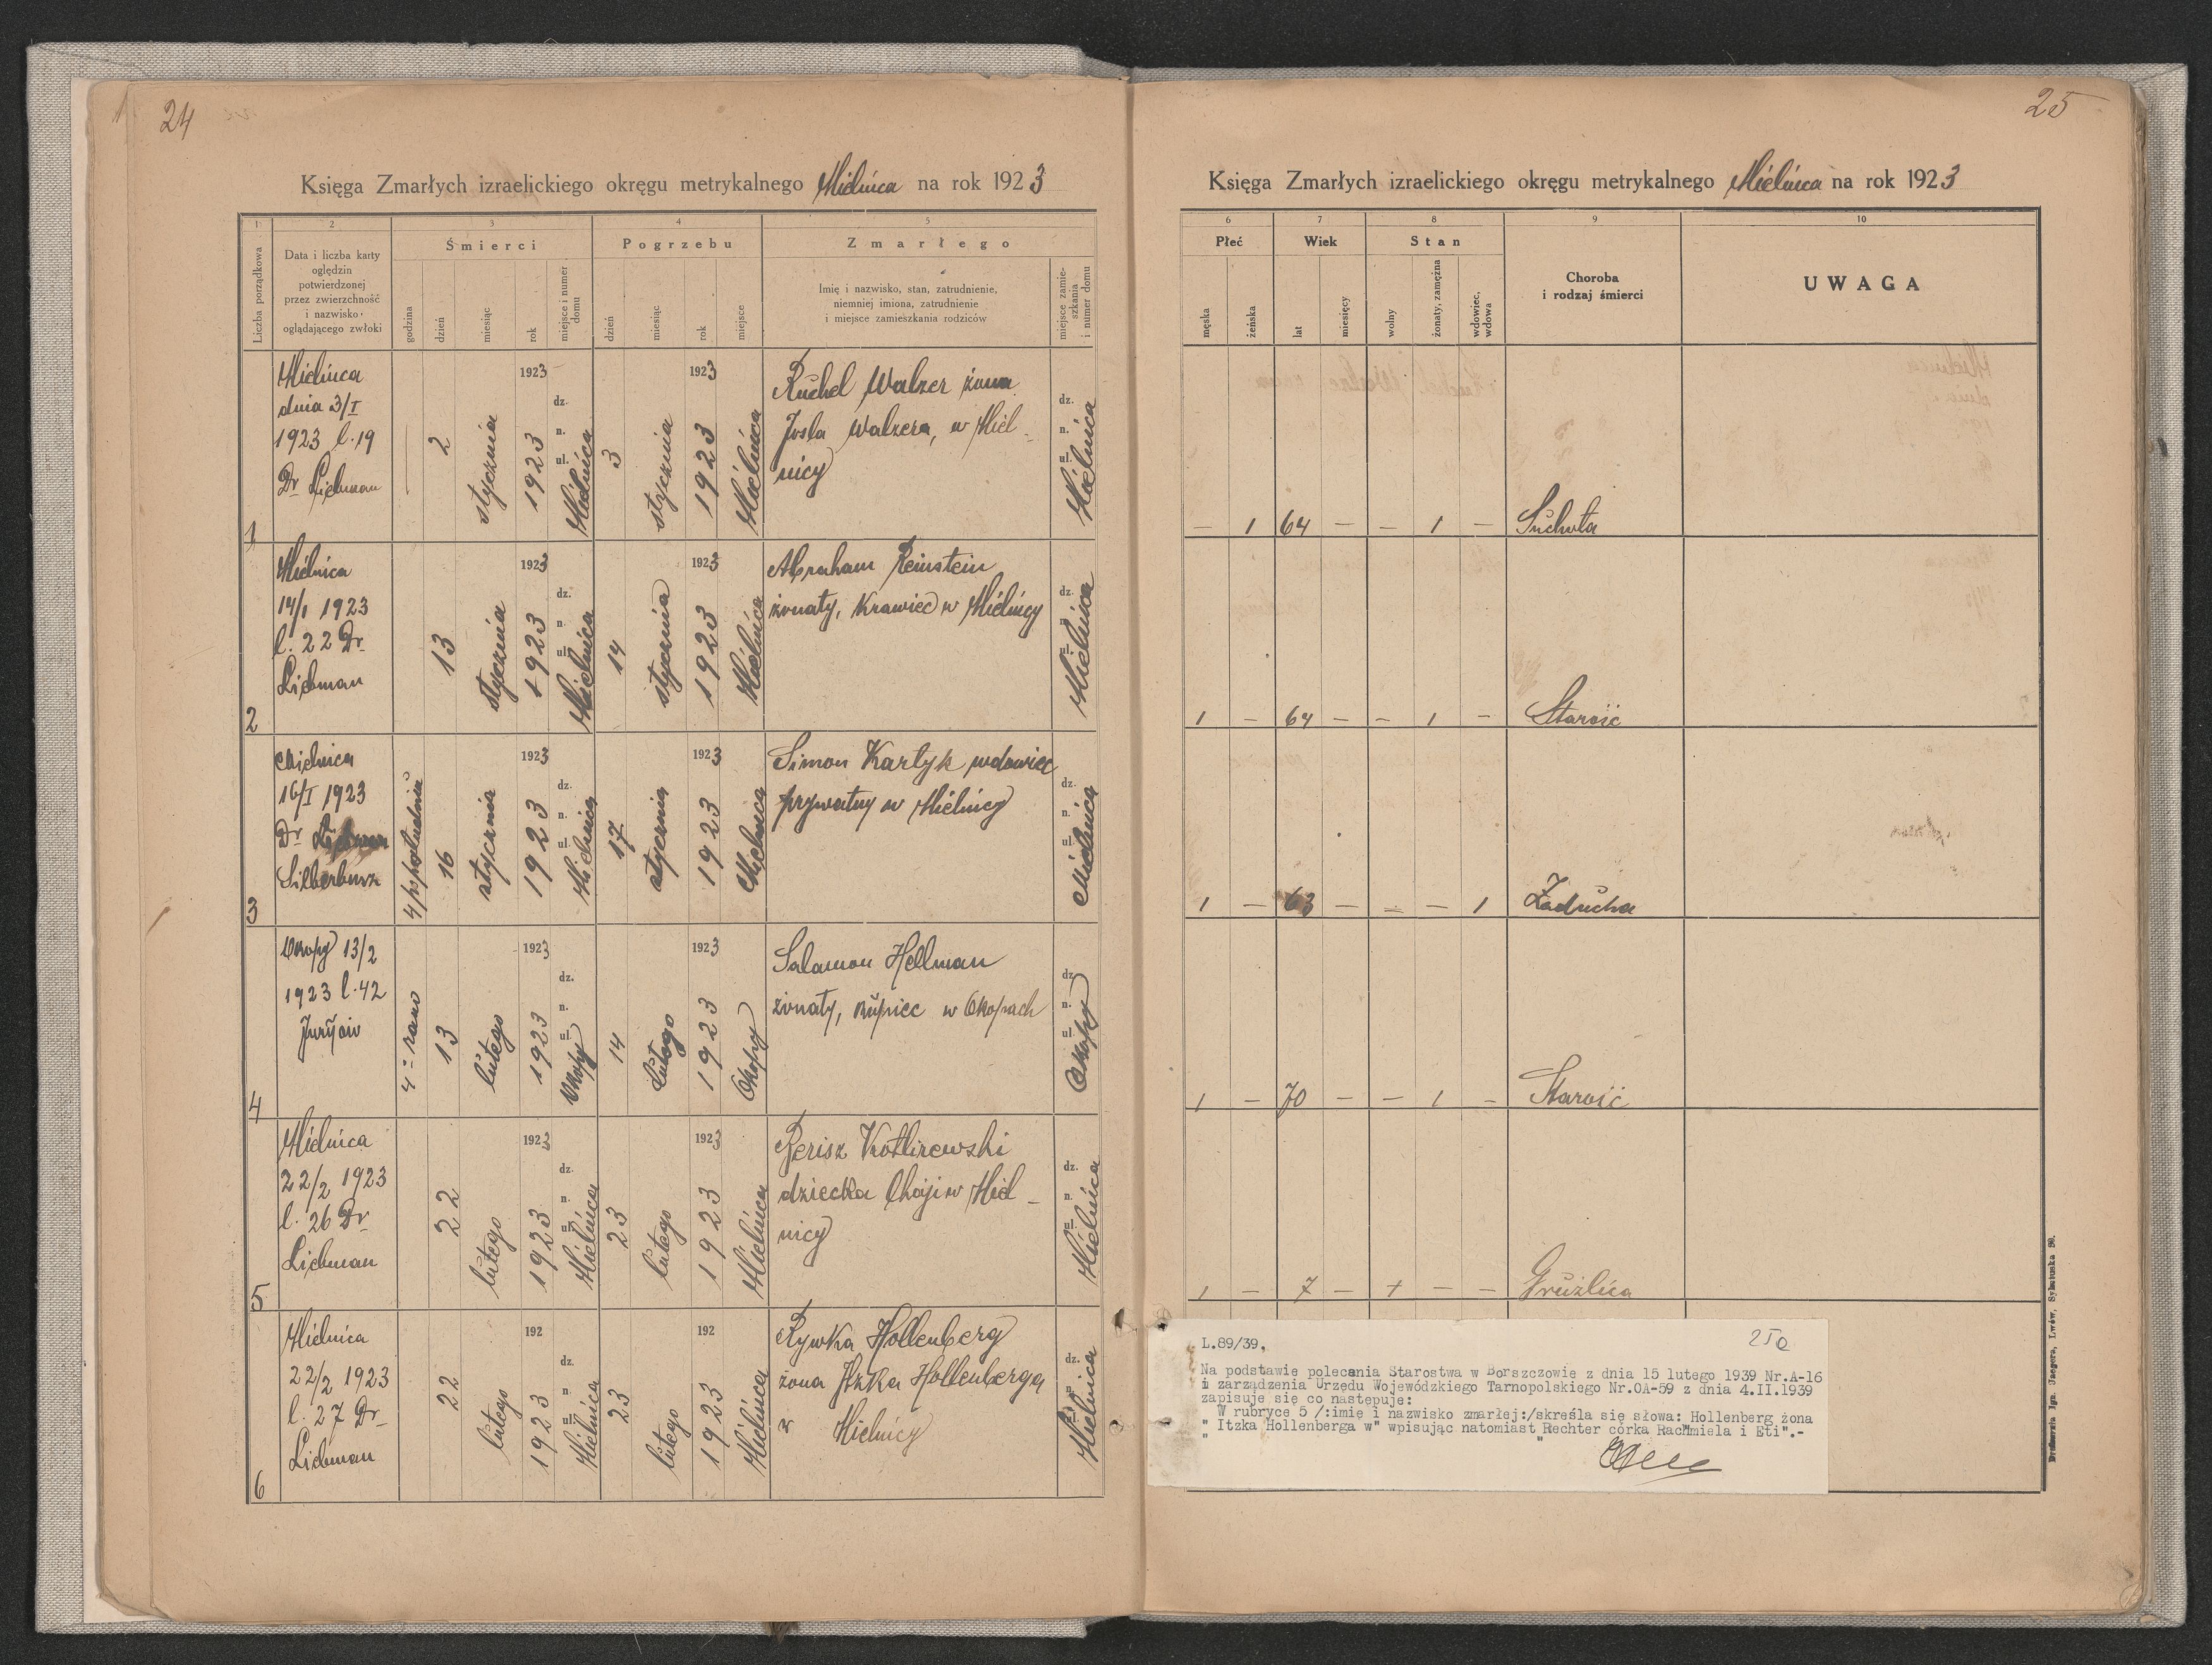 24
Księga Zmarłych izraelickiego okręgu metrykalnego Mielnica na rok 1923
1
2
3
4
5
Liczba porządkowa
Data i liczba karty
oględzin
potwierdzonej
przez zwierzchność
i nazwisko
oglądającego zwłoki
Śmierci
godzina
dzień
miesiąc
rok
miejsce i numer
domu
Pogrzebu
dzień
miesiąc
rok
miejsce
Zmarłego
Imię i nazwisko, stan, zatrudnienie,
niemniej imiona, zatrudnienie
i miejsce zamieszkania rodziców
miejsce zamie-
szkania
i numer domu
1
Mielnica
dnia 3/I
1923 l. 19
Dr Liebman
2
stycznia
1923
1923
dz.
n.
ul.
Mielnica
3
stycznia
1923
1923
Mielnica
Ruchel Walzer żona
Josla Walzera, w Miel-
nicy
dz.
n.
ul.
Mielnica
2
Mielnica
14/1 1923
l. 22 Dr
Liebman
13
stycznia
1923
1923
dz.
n.
ul.
Mielnica
14
stycznia
1923
1923
Mielnica
Abraham Reinstein
żonaty, Krawiec w Mielnicy
dz.
n.
ul.
Mielnica
3
Mielnica
16/I 1923
Dr
Silberbusz
4 popołudniu
16
stycznia
1923
1923
dz.
n.
ul.
Mielnica
17
stycznia
1923
1923
Mielnica
Simon Kartyk wdowiec
prywatny w Mielnicy
dz.
n.
ul.
Mielnica
4
Okopy 13/2
1923 l. 42
4 rano
13
lutego
1923
1923
dz.
n.
ul.
Okopy
14
Lutego
1923
1923
Okopy
Salamon Hellman
żonaty, kupiec w Okopach
dz.
n.
ul.
Okopy
5
Mielnica
22/2 1923
l. 26 Dr
Liebman
22
lutego
1923
1923
dz.
n.
ul.
Mielnica
23
lutego
1923
1923
Mielnica
Berisz Kotlirewski
dziecko Chaji w Miel-
nicy
dz.
n.
ul.
Mielnica
6
Mielnica
22/2 1923
l. 27 Dr
Liebman
22
lutego
192
1923
dz.
n.
ul.
Mielnica
23
lutego
192
1923
Mielnica
Rywka Hollenberg
żona Itzka Hollenberga
w Mielnicy
dz.
n.
ul.
Mielnica
25
Księga Zmarłych izraelickiego okręgu metrykalnego Mielnica na rok 1923
6
7
8
9
10
Płeć
męska
żeńska
Wiek
lat
miesięcy
Stan
wolny
żonaty, zamężna
wdowiec,
wdowa
Choroba
i rodzaj śmierci
UWAGA
— 1 64 — — 1 — Suchota
1 — 64 — — 1 — Starość
1 — 63 — — — 1 Zaducha
1 — 70 — — 1 — Starość
1 — 7 — + — — Gruźlica
L.89/39,
25a
Na podstawie polecania Starostwa w Borszczowie z dnia 15 lutego 1939 Nr.A-16
i zarządzenia Urzędu Wojewódzkiego Tarnopolskiego Nr.OA-59 z dnia 4.II.1939
zapisuje się co następuje:
W rubryce 5 /:imię i nazwisko zmarłej:/skreśla się słowa: Hollenberg żona
" Itzka Hollenberga w" wpisując natomiast "Rechter córka Rachmiela i Eti".-
Drukarnia Ign. Jaegera, Lwów, Sykstuska